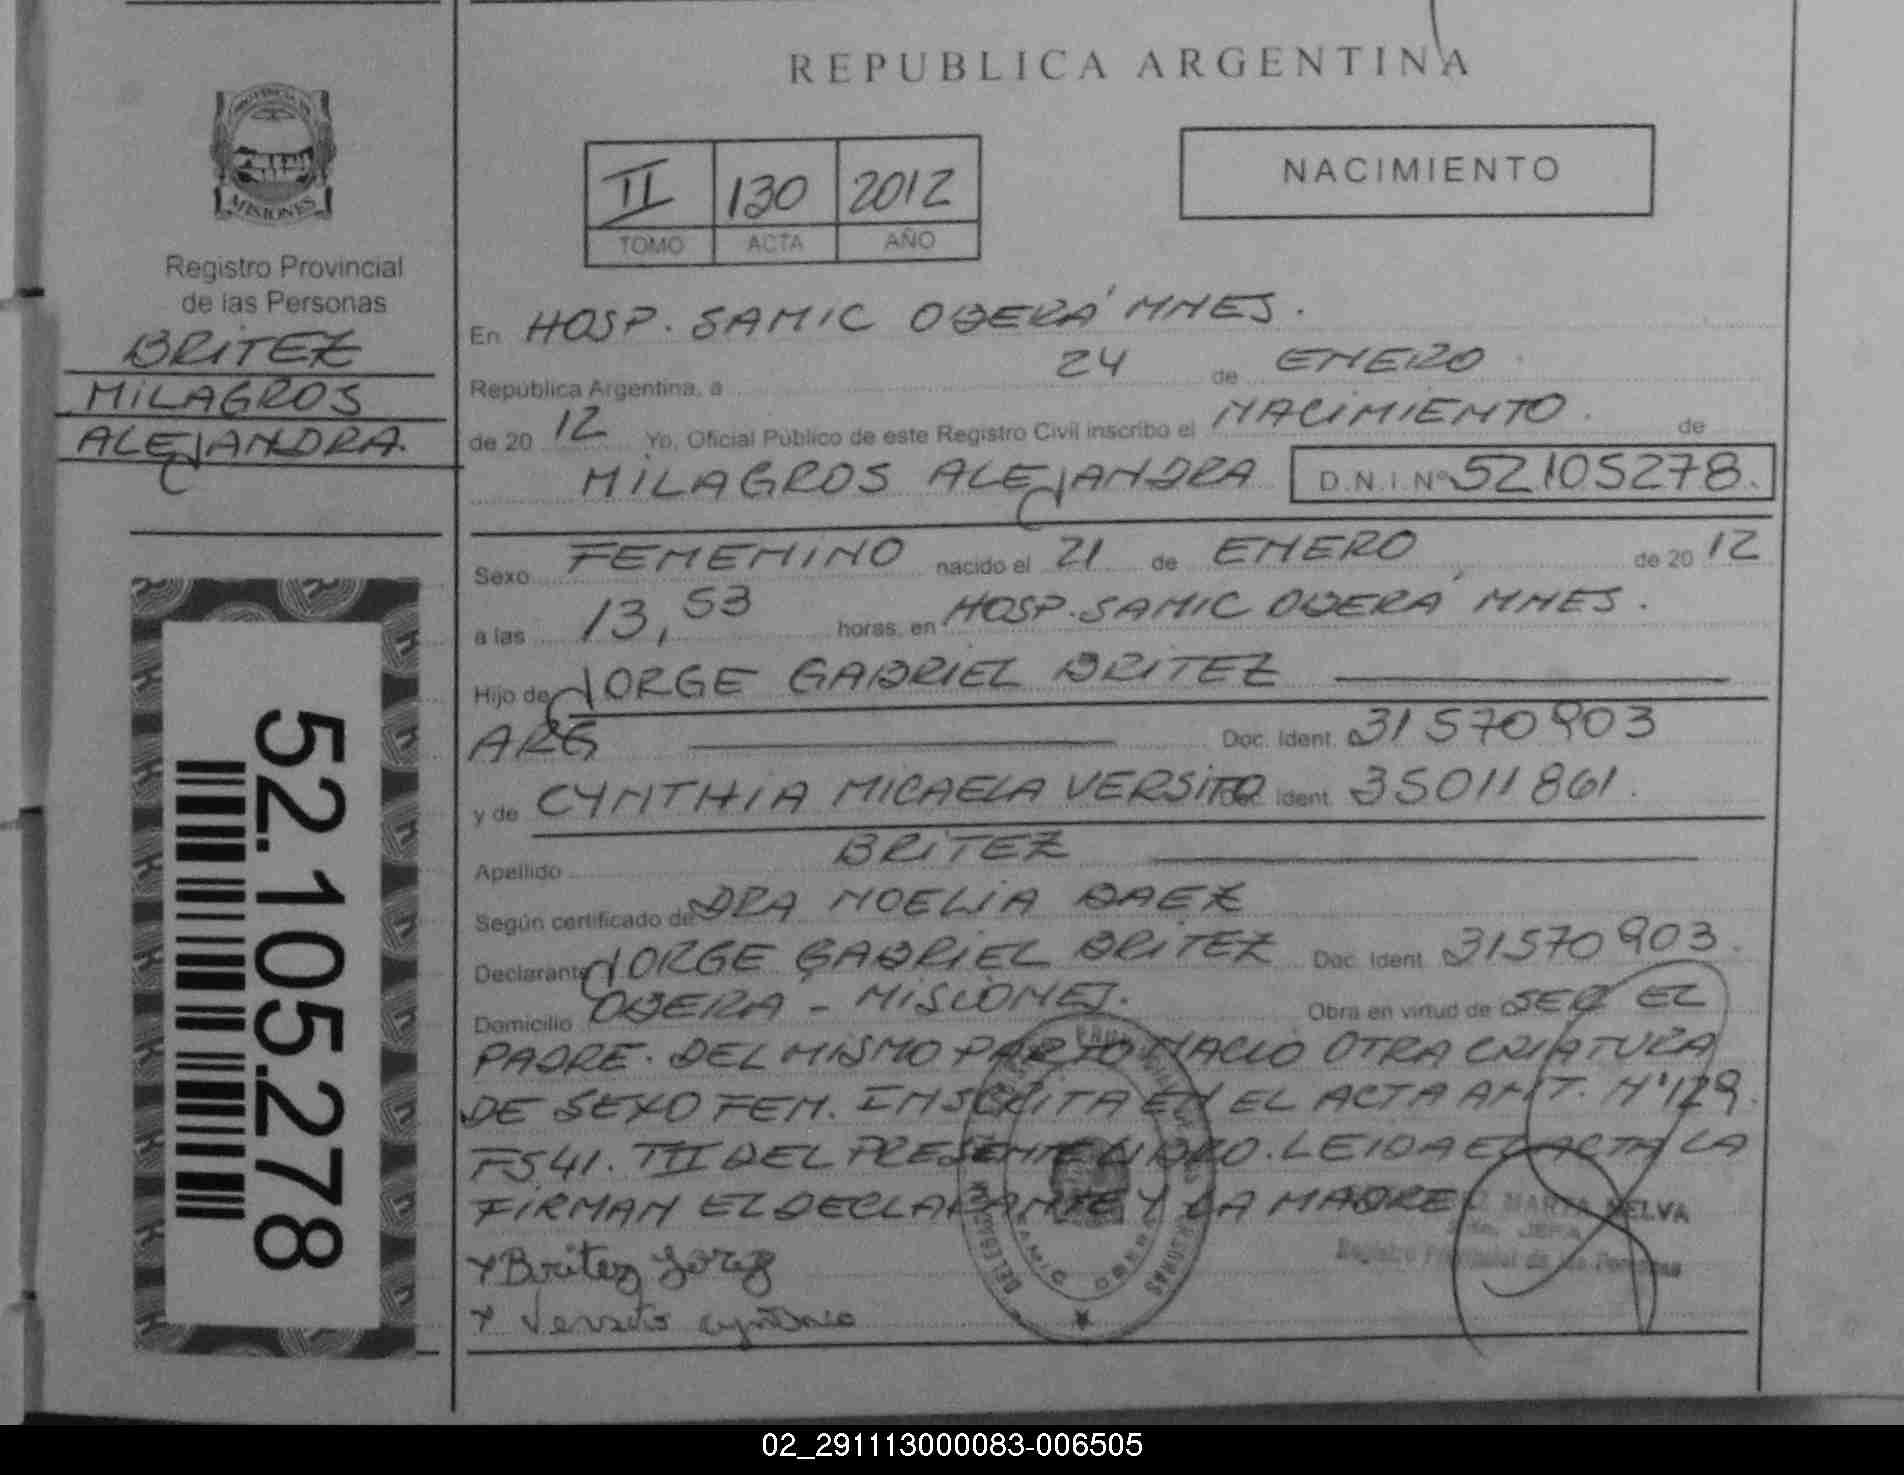 REPUBLICA ARGENTINA
PROVINCIA DE
MISIONES
Registro Provincial
de las Personas
BRITEZ
MILAGROS
ALEJANDRA.
52.105.278
II 130 2012
TOMO ACTA AÑO
NACIMIENTO
En HOSP. SAMIC OBERÁ MNES.
República Argentina, a 24 de ENERO
de 20 12 Yo, Oficial Público de este Registro Civil inscribo el NACIMIENTO de
MILAGROS ALEJANDRA D.N.I. Nº 52105278.
Sexo FEMENINO nacido el 21 de ENERO de 20 12
a las 13,53 horas, en HOSP. SAMIC OBERÁ MNES.
Hijo de JORGE GABRIEL BRITEZ
ARG Doc. Ident. 31570903
y de CYNTHIA MICAELA VERSITO Doc. Ident. 35011861.
Apellido BRITEZ
Según certificado de DRA NOELIA BAEZ
Declarante JORGE GABRIEL BRITEZ Doc. Ident. 31570903.
Domicilio OBERA - MISIONES. Obra en virtud de SER EL
PADRE. DEL MISMO PARTO NACIO OTRA CRIATURA
DE SEXO FEM. INSCRITA EN EL ACTA ANT. Nº129.
FS41. TII DEL PRESENTE LIBRO. LEIDA EL ACTA LA
FIRMAN EL DECLARANTE Y LA MADRE
MARTA SELVA
JEFA
Registro Provincial de las Personas
x Britez Jorge
x Versito Cynthia
02_291113000083-006505